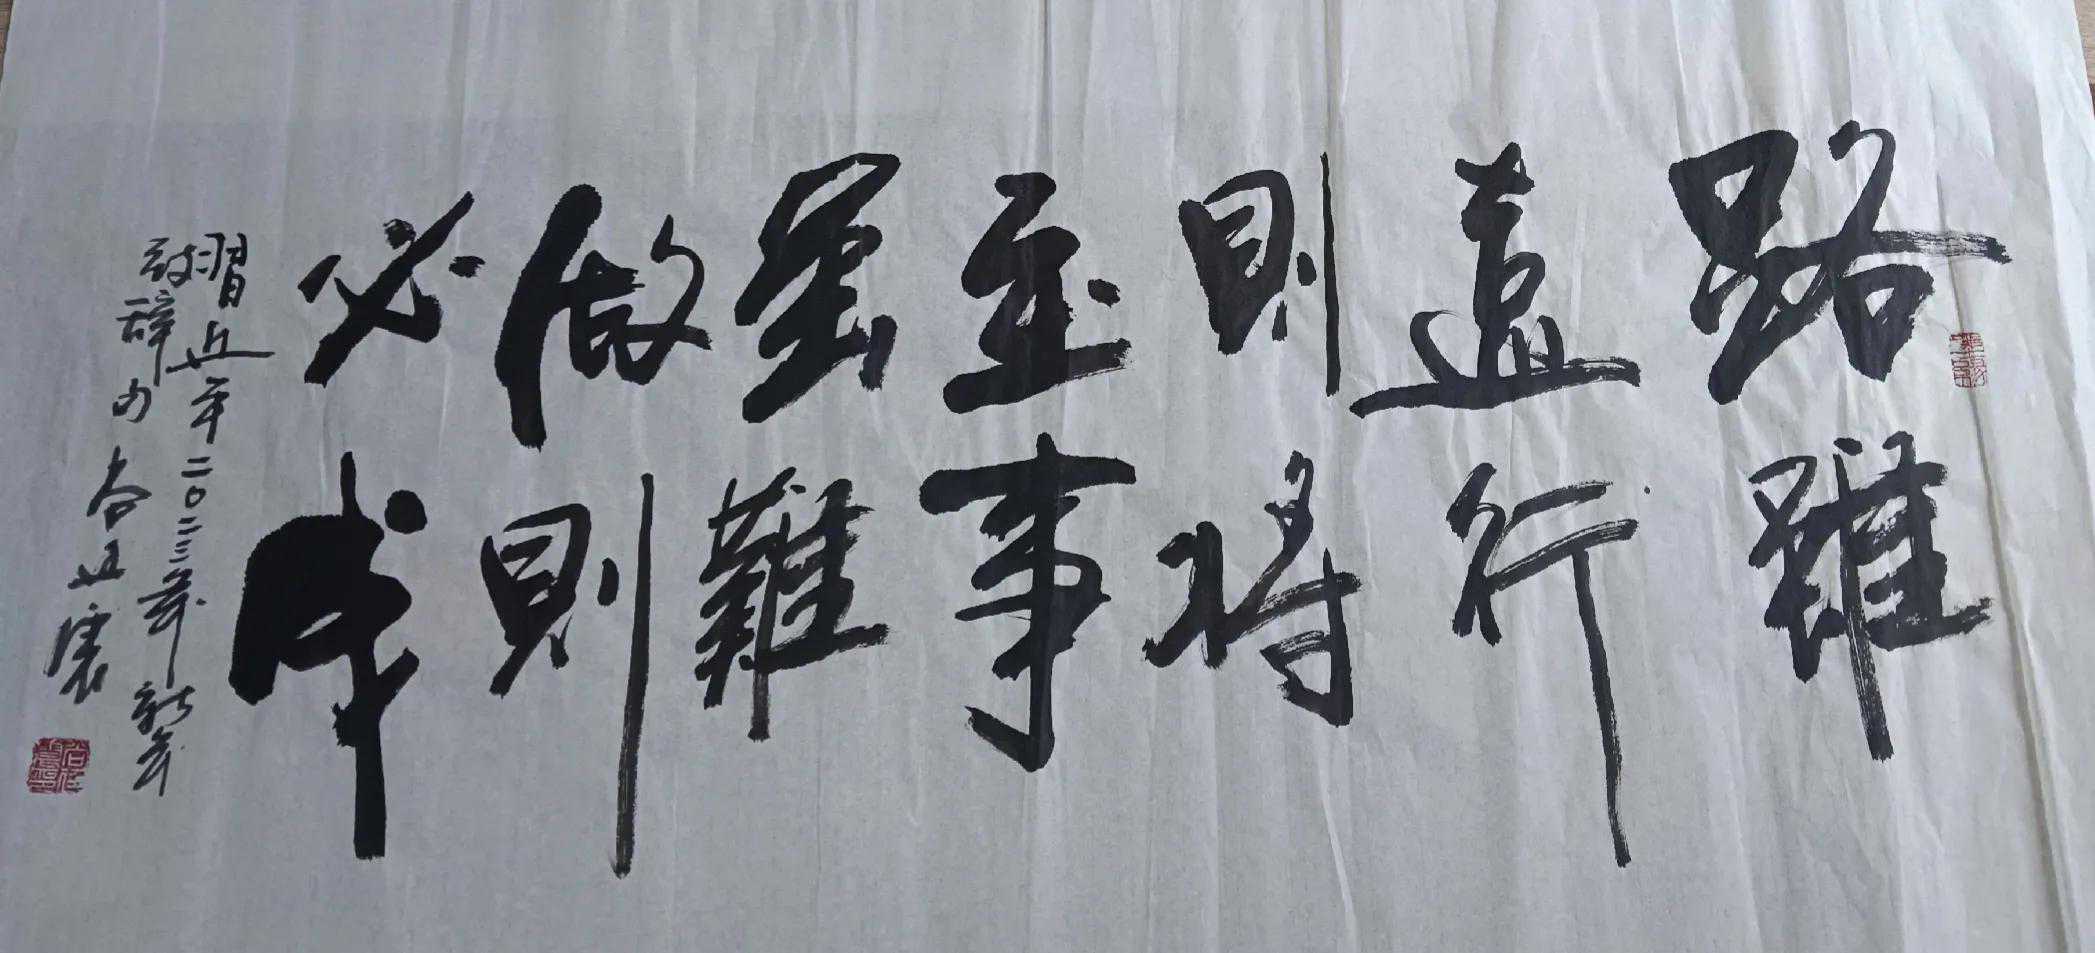 路雖
遠行
則將
至事
虽難
做則
必成
習近平二〇二三年新年
致辭句